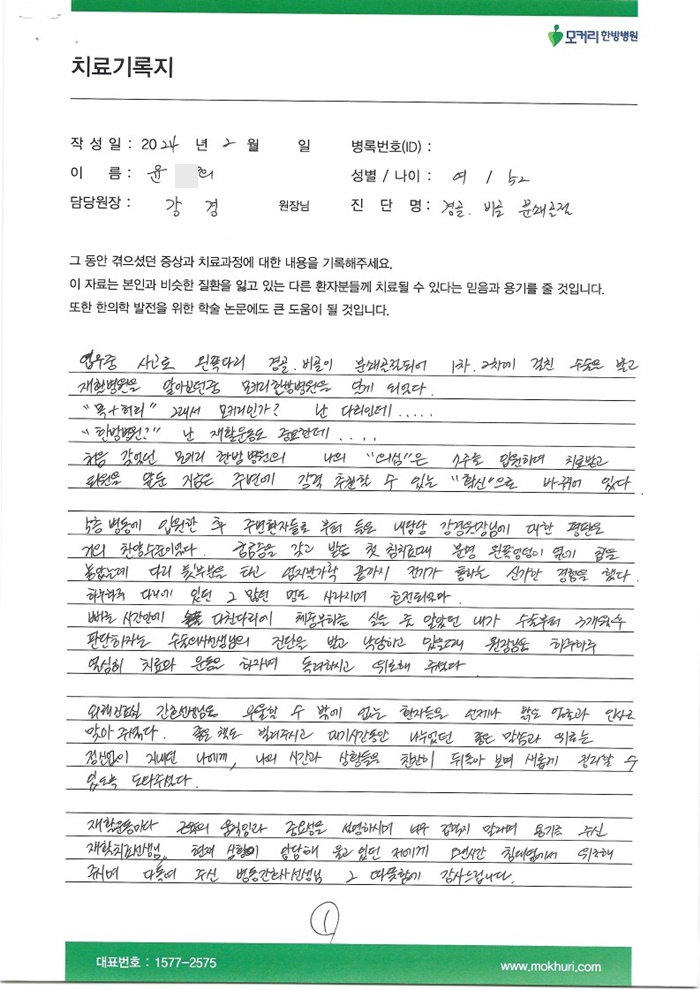 모커리한방병원
치료기록지
작성일 : 2024 년 2 월 일 병록번호(ID) :
이 름 : 윤 희 성별 / 나이 : 여 / 52
담당원장 : 강 경 원장님 진 단 명 : 경골. 비골 분쇄골절
그 동안 겪으셨던 증상과 치료과정에 대한 내용을 기록해주세요.
이 자료는 본인과 비슷한 질환을 잃고 있는 다른 환자분들께 치료될 수 있다는 믿음과 용기를 줄 것입니다.
또한 한의학 발전을 위한 학술 논문에도 큰 도움이 될 것입니다.
업무중 사고로 왼쪽다리 경골. 비골이 분쇄골절되어 1차. 2차에 걸친 수술을 받고
재활병원을 알아보던중 모커리한방병원을 알게 되었다.
"목+허리" 그래서 모커리인가? 난 다리인데.....
"한방병원?" 난 재활운동도 중요한데....
처음 갖었던 모커리 한방병원의 나의 "의심"은 수주를 입원하며 치료받고
퇴원을 앞둔 지금은 주변에 적극 추천할 수 있는 "확신"으로 바뀌어 있다.
5층 병동에 입원한 후 주변환자들로 부터 들은 내담당 강경원장님에 대한 평판은
거의 찬양수준이었다. 궁금증을 갖고 받은 첫 침치료때 분명 왼쪽엉덩이 옆기 침을
놓았는데 다리 뒷부분을 타고 엄지발가락 끝까지 전기가 통하는 신기한 경험을 했다.
하루하루 다리에 있던 그 많던 멍도 사라지며 호전되었다.
빠른 시간안에 다친다리에 체중부하를 실을 줄 알았던 내가 수술부터 3개월후
판단하자는 수술의사선생님의 진단을 받고 낙담하고 있을때 원장님은 하루하루
열심히 치료와 운동을 하자며 독려하시고 위로해 주셨다.
간호선생님은 우울할 수 밖에 없는 환자들을 언제나 밝은 얼굴과 인사로
맞아 주셨다. 좋은 책도 빌려주시고 대기시간동안 나누었던 좋은 말씀과 위로는
정신없이 지내던 나에게, 나의 시간과 상황들을 찬찬히 뒤돌아 보며 새롭게 정리할 수
있도록 도와주셨다.
재활운동마다 근육의 움직임과 중요성을 설명하시며 너무 겁먹지 말라며 용기를 주신
재활치료선생님, 현재 상황이 암담해 울고 있던 저에게 시간 침대옆에서 위로해
주시며 다독여 주신 병동간호사선생님 그 따뜻함에 감사드립니다.
1
대표번호 : 1577-2575 www.mokhuri.com